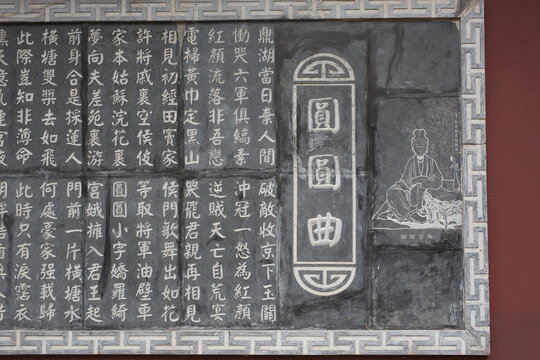 圓圓曲
鼎湖當日棄人間 破敵收京下玉關
慟哭六軍俱縞素 沖冠一怒為紅顏
紅顏流落非吾戀 逆賊天亡自荒宴
電掃黃巾定黑山 哭罷君親再相見
相見初經田竇家 侯門歌舞出如花
許將戚裏空侯伎 等取將軍油壁車
家本姑蘇浣花裏 圓圓小字嬌羅綺
夢向夫差苑裏游 宮娥擁入君王起
前身合是採蓮人 門前一片橫塘水
橫塘雙槳去如飛 何處豪家強載歸
此際豈知非薄命 此時只有淚霑衣